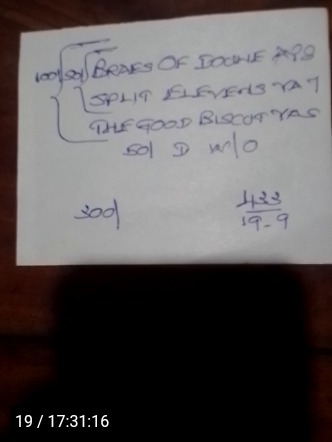 100/ 50/ BRAES OF DOUNE AYR
SPLIT ELEVENS YAT
THE GOOD BISCUIT YAS
50/ D W/O
300/
433
19-9
19 / 17:31:16